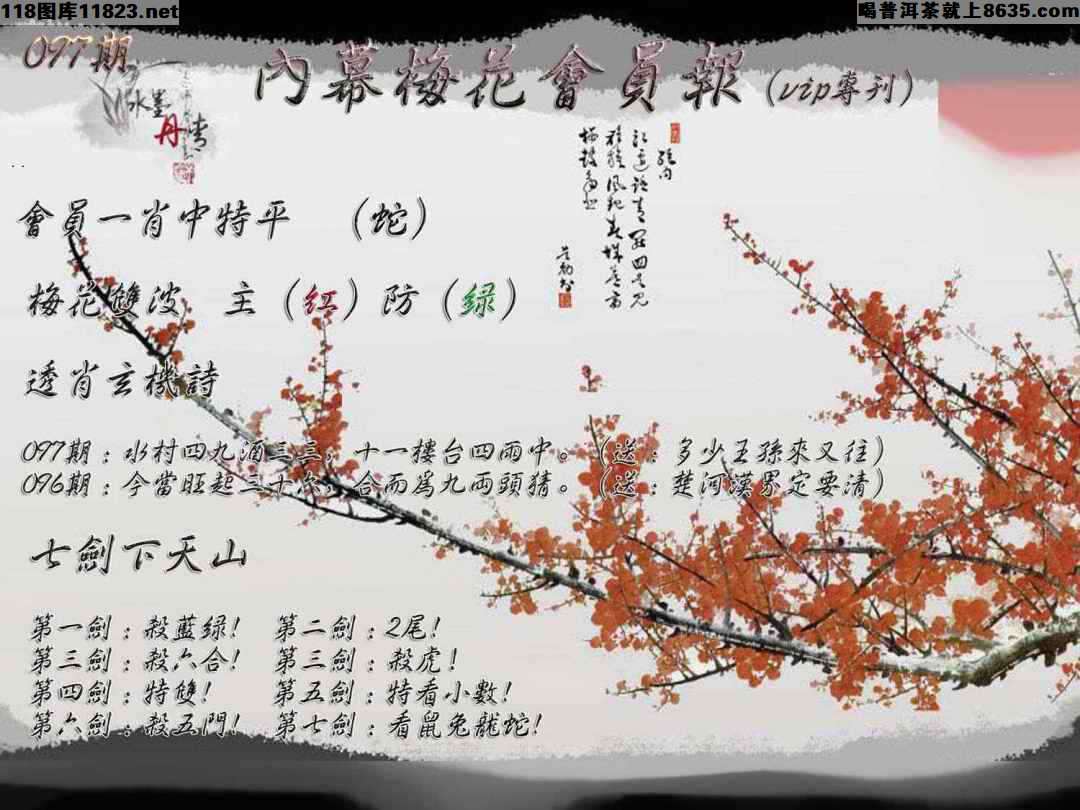 118图库11823.net
喝普洱茶就上8635.com
097期
水墨
丹青
內幕梅花會員報(vip專刊)
會員一肖中特平 (蛇)
梅花雙波 主(紅)防(綠)
透肖玄機詩
097期:水村四九酒三三,十一樓台四雨中。(送:多少王孫來又往)
096期:今當旺起三十六,合而為九兩頭猜。(送:楚河漢界定要清)
七劍下天山
第一劍:殺藍綠! 第二劍:2尾!
第三劍:殺六合! 第三劍:殺虎!
第四劍:特雙! 第五劍:特看小數!
第六劍:殺五門! 第七劍:看鼠兔龍蛇!